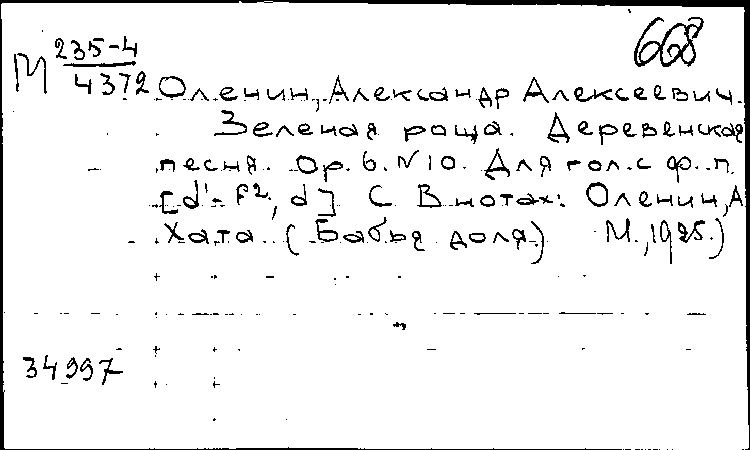 668
М 235-4
4372 Оленин, Александр Алексеевич.
Зеленая роща. Деревенская
песня. Op. 6. N 10. Для гол. с ф.-п.
[d¹-f², d] С В нотах: Оленин, А
Хата (Бабья доля) М., 1925.)
34997